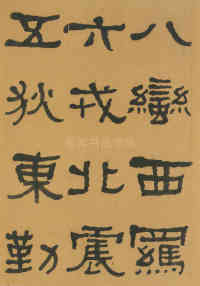 八蠻西羅
六戎北震
五狄東勤